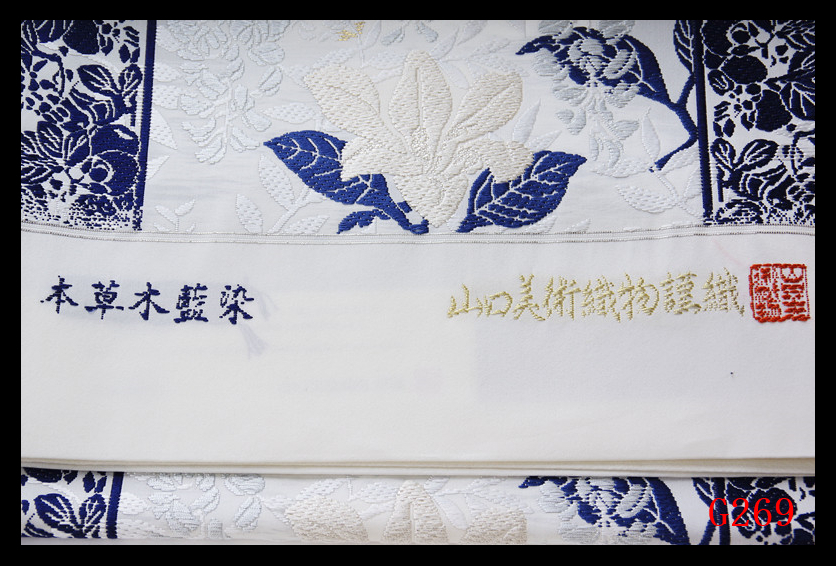 本草木藍染
山口美術織物謹織
G269